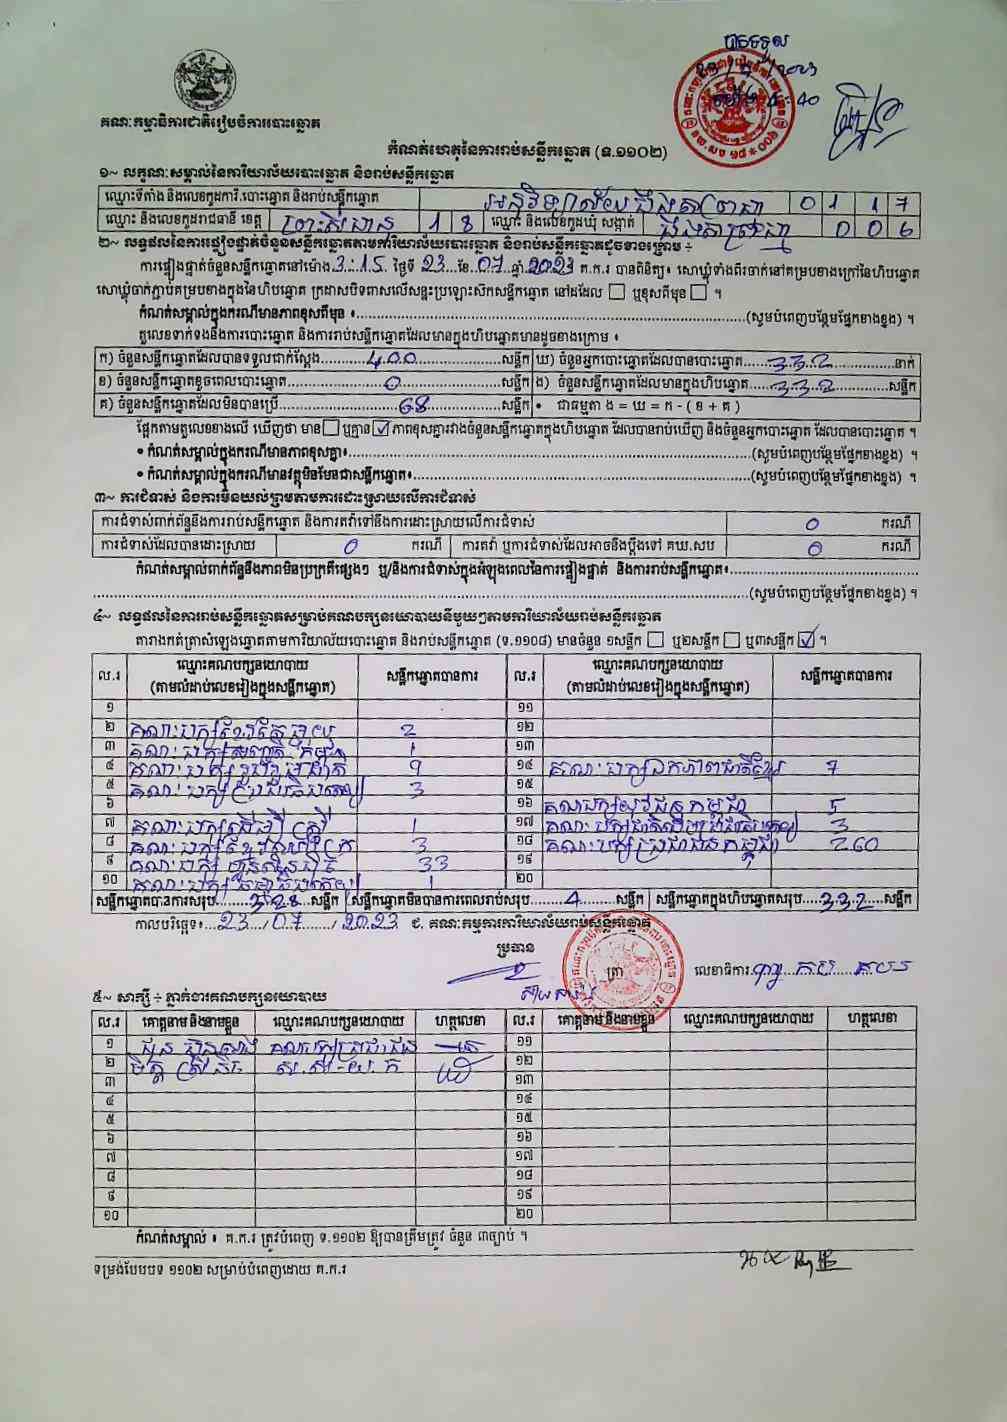 បានទទួល
គណៈកម្មាធិការជាតិរៀបចំការបោះឆ្នោត
កំណត់ហេតុនៃការរាប់សន្លឹកឆ្នោត (ទ.១១០២)
១~ លក្ខណៈសម្គាល់នៃការិយាល័យបោះឆ្នោត និងរាប់សន្លឹកឆ្នោត
ឈ្មោះទីតាំង និងលេខកូដការិ.បោះឆ្នោត និងរាប់សន្លឹកឆ្នោត 0 1 1 7
ឈ្មោះ និងលេខកូដរាជធានី ខេត្ត ព្រះសីហនុ 1 8 ឈ្មោះ និងលេខកូដឃុំ សង្កាត់ 0 0 6
២~ លទ្ធផលនៃការផ្ទៀងផ្ទាត់ចំនួនសន្លឹកឆ្នោតតាមការិយាល័យបោះឆ្នោត និងរាប់សន្លឹកឆ្នោតដូចខាងក្រោម ÷
ការផ្ទៀងផ្ទាត់ចំនួនសន្លឹកឆ្នោតនៅម៉ោង 3:15 ថ្ងៃទី 23 ខែ 07 ឆ្នាំ 2023 គ.ក.រ បានពិនិត្យ៖ សោឃ្លុំទាំងពីរចាក់នៅគម្របខាងក្រៅនៃហិបឆ្នោត
សោឃ្លុំចាក់ភ្ជាប់គម្របខាងក្នុងនៃហិបឆ្នោត ក្រដាសបិទពាសលើសន្ទះប្រឡោះសឹកសន្លឹកឆ្នោត នៅដដែល ☐ ឬខុសពីមុន ☐ ។
កំណត់សម្គាល់ក្នុងករណីមានភាពខុសពីមុន ៖ (សូមបំពេញបន្ថែមផ្នែកខាងខ្នង) ។
តួលេខទាក់ទងនឹងការបោះឆ្នោត និងការរាប់សន្លឹកឆ្នោតដែលមានក្នុងហិបឆ្នោតមានដូចខាងក្រោម ៖
ក) ចំនួនសន្លឹកឆ្នោតដែលបានទទួលជាក់ស្តែង 400 សន្លឹក ឃ) ចំនួនអ្នកបោះឆ្នោតដែលបានបោះឆ្នោត 332 នាក់
ខ) ចំនួនសន្លឹកឆ្នោតខូចពេលបោះឆ្នោត 0 សន្លឹក ង) ចំនួនសន្លឹកឆ្នោតដែលមានក្នុងហិបឆ្នោត 332 សន្លឹក
គ) ចំនួនសន្លឹកឆ្នោតដែលមិនបានប្រើ 68 សន្លឹក • ជាធម្មតា ង = ឃ = ក - ( ខ + គ )
ផ្អែកតាមតួលេខខាងលើ ឃើញថា មាន ☐ ឬគ្មាន ☑ ភាពខុសគ្នារវាងចំនួនសន្លឹកឆ្នោតក្នុងហិបឆ្នោត ដែលបានរាប់ឃើញ និងចំនួនអ្នកបោះឆ្នោត ដែលបានបោះឆ្នោត ។
• កំណត់សម្គាល់ក្នុងករណីមានភាពខុសគ្នា៖ (សូមបំពេញបន្ថែមផ្នែកខាងខ្នង) ។
• កំណត់សម្គាល់ក្នុងករណីមានវត្ថុមិនមែនជាសន្លឹកឆ្នោត៖ (សូមបំពេញបន្ថែមផ្នែកខាងខ្នង) ។
៣~ ការជំទាស់ និងការមិនយល់ព្រមតាមការដោះស្រាយលើការជំទាស់
ការជំទាស់ពាក់ព័ន្ធនឹងការរាប់សន្លឹកឆ្នោត និងការតវ៉ាទៅនឹងការដោះស្រាយលើការជំទាស់ 0 ករណី
ការជំទាស់ដែលបានដោះស្រាយ 0 ករណី ការតវ៉ា ឬការជំទាស់ដែលអាចនឹងប្តឹងទៅ គឃ.សប 0 ករណី
កំណត់សម្គាល់ពាក់ព័ន្ធនឹងភាពមិនប្រក្រតីផ្សេងៗ ឬ/និងការជំទាស់ក្នុងអំឡុងពេលនៃការផ្ទៀងផ្ទាត់ និងការរាប់សន្លឹកឆ្នោត៖
(សូមបំពេញបន្ថែមផ្នែកខាងខ្នង) ។
៤~ លទ្ធផលនៃការរាប់សន្លឹកឆ្នោតសម្រាប់គណបក្សនយោបាយនីមួយៗតាមការិយាល័យរាប់សន្លឹកឆ្នោត
តារាងកត់ត្រាសំឡេងឆ្នោតតាមការិយាល័យបោះឆ្នោត និងរាប់សន្លឹកឆ្នោត (ទ.១១០៨) មានចំនួន ១សន្លឹក ☐ ឬ២សន្លឹក ☐ ឬ៣សន្លឹក ☑ ។
ល.រ ឈ្មោះគណបក្សនយោបាយ (តាមលំដាប់លេខរៀងក្នុងសន្លឹកឆ្នោត) សន្លឹកឆ្នោតបានការ ល.រ ឈ្មោះគណបក្សនយោបាយ (តាមលំដាប់លេខរៀងក្នុងសន្លឹកឆ្នោត) សន្លឹកឆ្នោតបានការ
១ ១១
២ គណៈបក្ស 2 ១២
៣ គណៈបក្ស 1 ១៣
៤ គណៈបក្ស 9 ១៤ គណៈបក្សឯកភាពជាតិខ្មែរ 7
៥ គណៈបក្ស 3 ១៥
៦ ១៦ គណបក្សយុវជនកម្ពុជា 5
៧ គណៈបក្ស 1 ១៧ គណៈបក្ស 3
៨ គណៈបក្ស 3 ១៨ គណៈបក្សប្រជាជនកម្ពុជា 260
៩ គណៈបក្ស ហ៊្វុនស៊ិនប៉ិច 33 ១៩
១០ គណៈបក្ស 1 ២០
សន្លឹកឆ្នោតបានការសរុប 328 សន្លឹក សន្លឹកឆ្នោតមិនបានការពេលរាប់សរុប 4 សន្លឹក សន្លឹកឆ្នោតក្នុងហិបឆ្នោតសរុប 332 សន្លឹក
កាលបរិច្ឆេទ៖ 23 / 07 / 2023 ជ. គណៈកម្មការការិយាល័យរាប់សន្លឹកឆ្នោត
ប្រធាន
ត្រា លេខាធិការ
៥~ សាក្សី ÷ ភ្នាក់ងារគណបក្សនយោបាយ
ល.រ គោត្តនាម និងនាមខ្លួន ឈ្មោះគណបក្សនយោបាយ ហត្ថលេខា ល.រ គោត្តនាម និងនាមខ្លួន ឈ្មោះគណបក្សនយោបាយ ហត្ថលេខា
១ គណបក្សប្រជាជន ១១
២ ស.ស.យ.ក ១២
៣ ១៣
៤ ១៤
៥ ១៥
៦ ១៦
៧ ១៧
៨ ១៨
៩ ១៩
១០ ២០
កំណត់សម្គាល់ ៖ គ.ក.រ ត្រូវបំពេញ ទ.១១០២ ឱ្យបានត្រឹមត្រូវ ចំនួន ៣ច្បាប់ ។
ទម្រង់បែបបទ ១១០២ សម្រាប់បំពេញដោយ គ.ក.រ